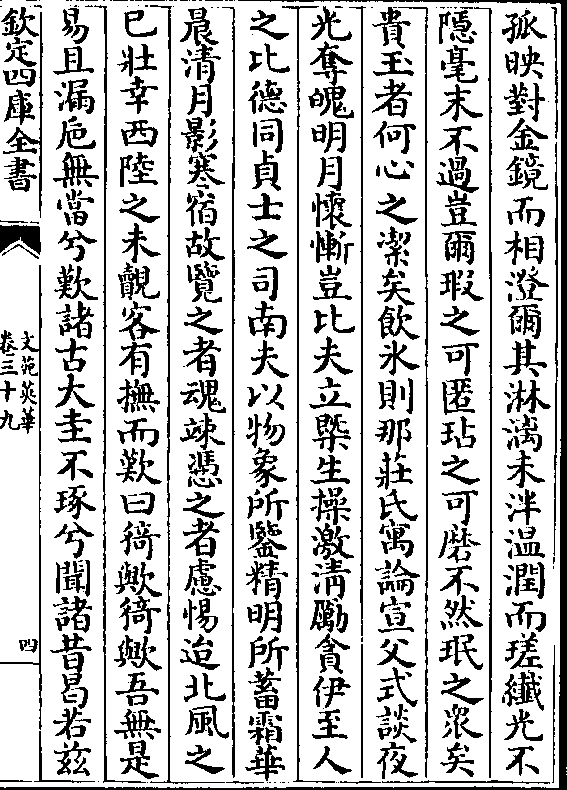 孤映對金鏡而相澄爾其淋漓未泮温潤而瑳纎光不
隠毫末不過豈爾瑕之可匿玷之可磨不然珉之衆矣
貴玉者何心之潔矣飲氷則那莊氏寓論宣父式談夜
光奪魄明月懷慚豈比夫立槩生操激清勵貪伊至人
之比德同貞士之司南夫以物象所鑒精明所蓄霜華
晨清月影寒宿故覽之者魂竦憑之者慮惕迨北風之
已壯幸西陸之未覿客有撫而歎曰猗歟猗歟吾無是
易且漏巵無當兮歎諸古大圭不琢兮聞諸昔曷若兹
欽定四庫全書
文苑英華
卷三十九
四